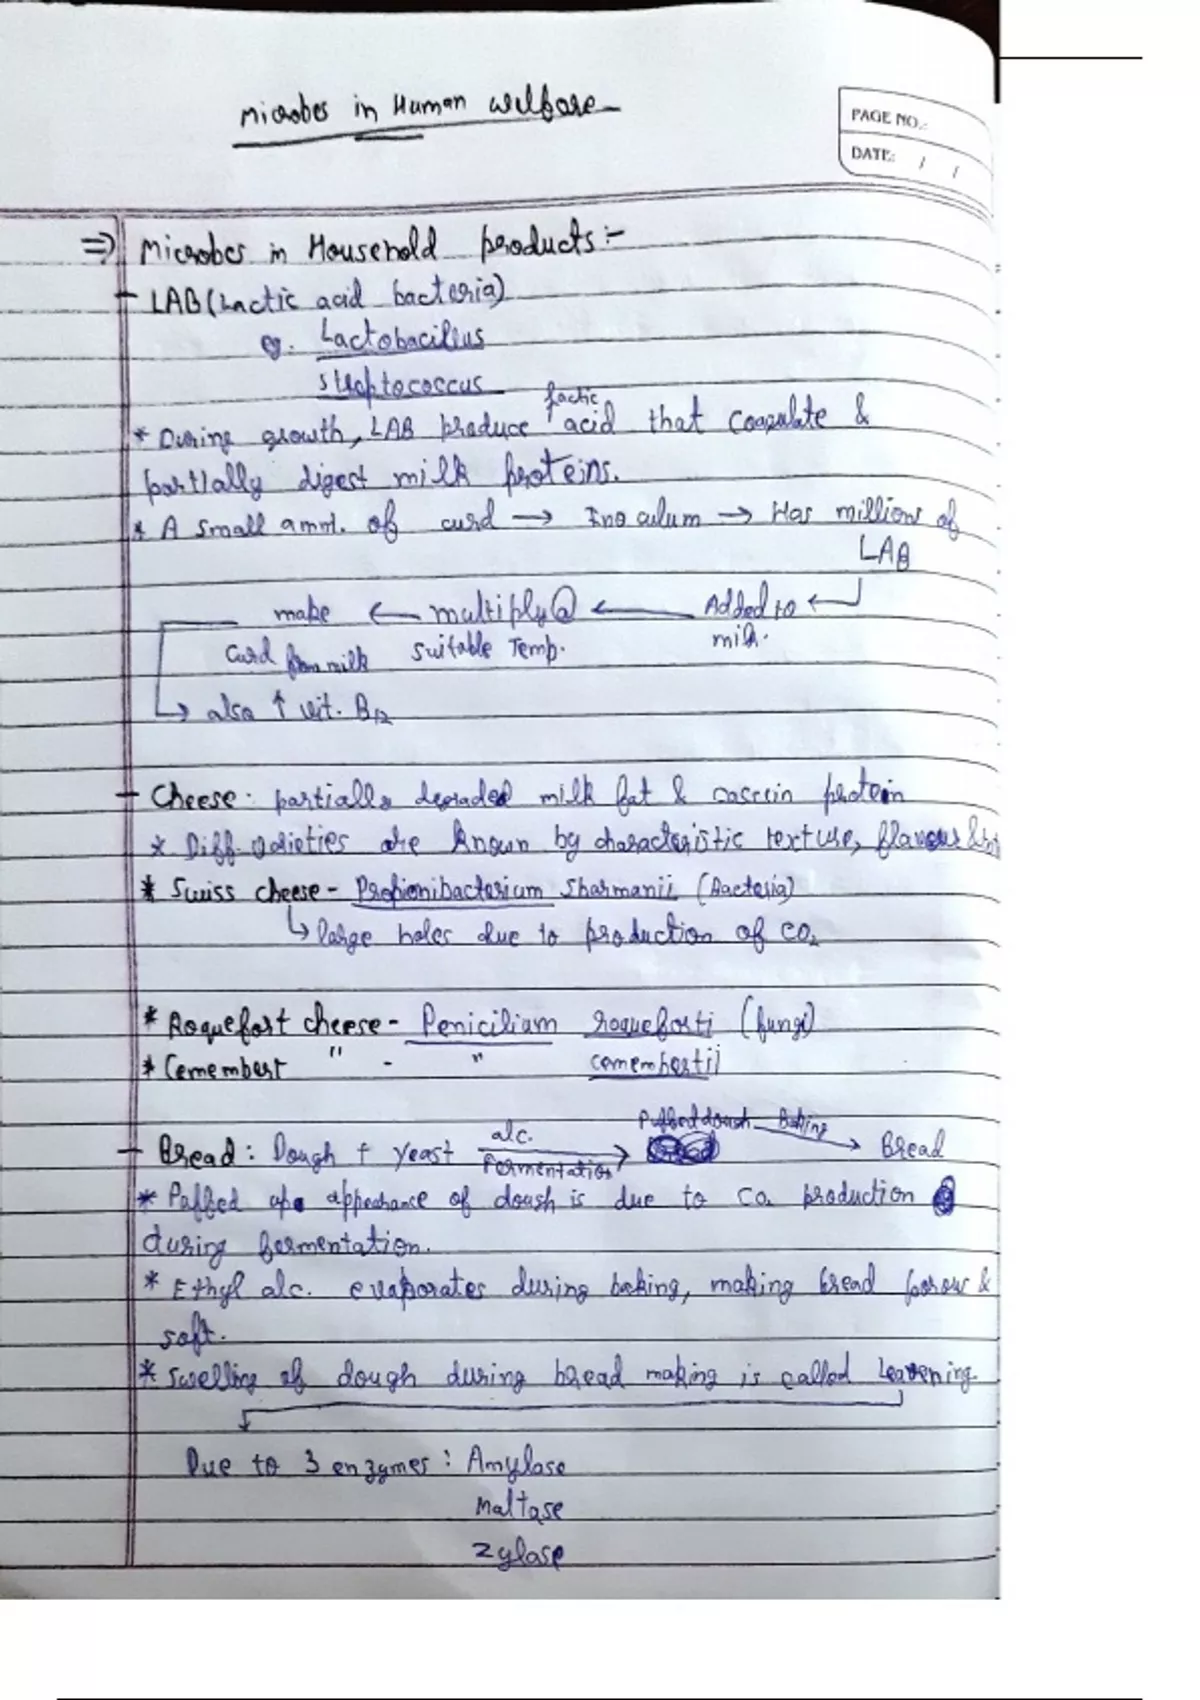 Microbes in Human welfare
PAGE NO.:
DATE: / /
⇒ Microbes in Household products:-
- LAB (Lactic acid bacteria)
eg. Lactobacillus
Streptococcus
lactic
* During growth, LAB produce acid that coagulate &
partially digest milk proteins.
* A small amnt. of curd → Inoculum → Has millions of
LAB
make ← multiply @ ← Added to
curd from milk suitable Temp. milk.
↳ also ↑ vit. B12
- Cheese: partially degraded milk fat & casein protein
* Diff. varieties are known by characteristic texture, flavour &
* Swiss cheese - Propionibacterium Sharmanii (Bacteria)
↳ large holes due to production of CO2
* Roquefort cheese - Penicilium roqueforti (fungi)
* Cemembert " - " cemembertii
Puffed dough Baking
- Bread: Dough + Yeast alc. Fermentation → → Bread
* Puffed up appearance of dough is due to CO2 production
during fermentation.
* Ethyl alc. evaporates during baking, making bread porous &
soft.
* Swelling of dough during bread making is called leavening.
Due to 3 enzymes: Amylase
Maltase
Zylase